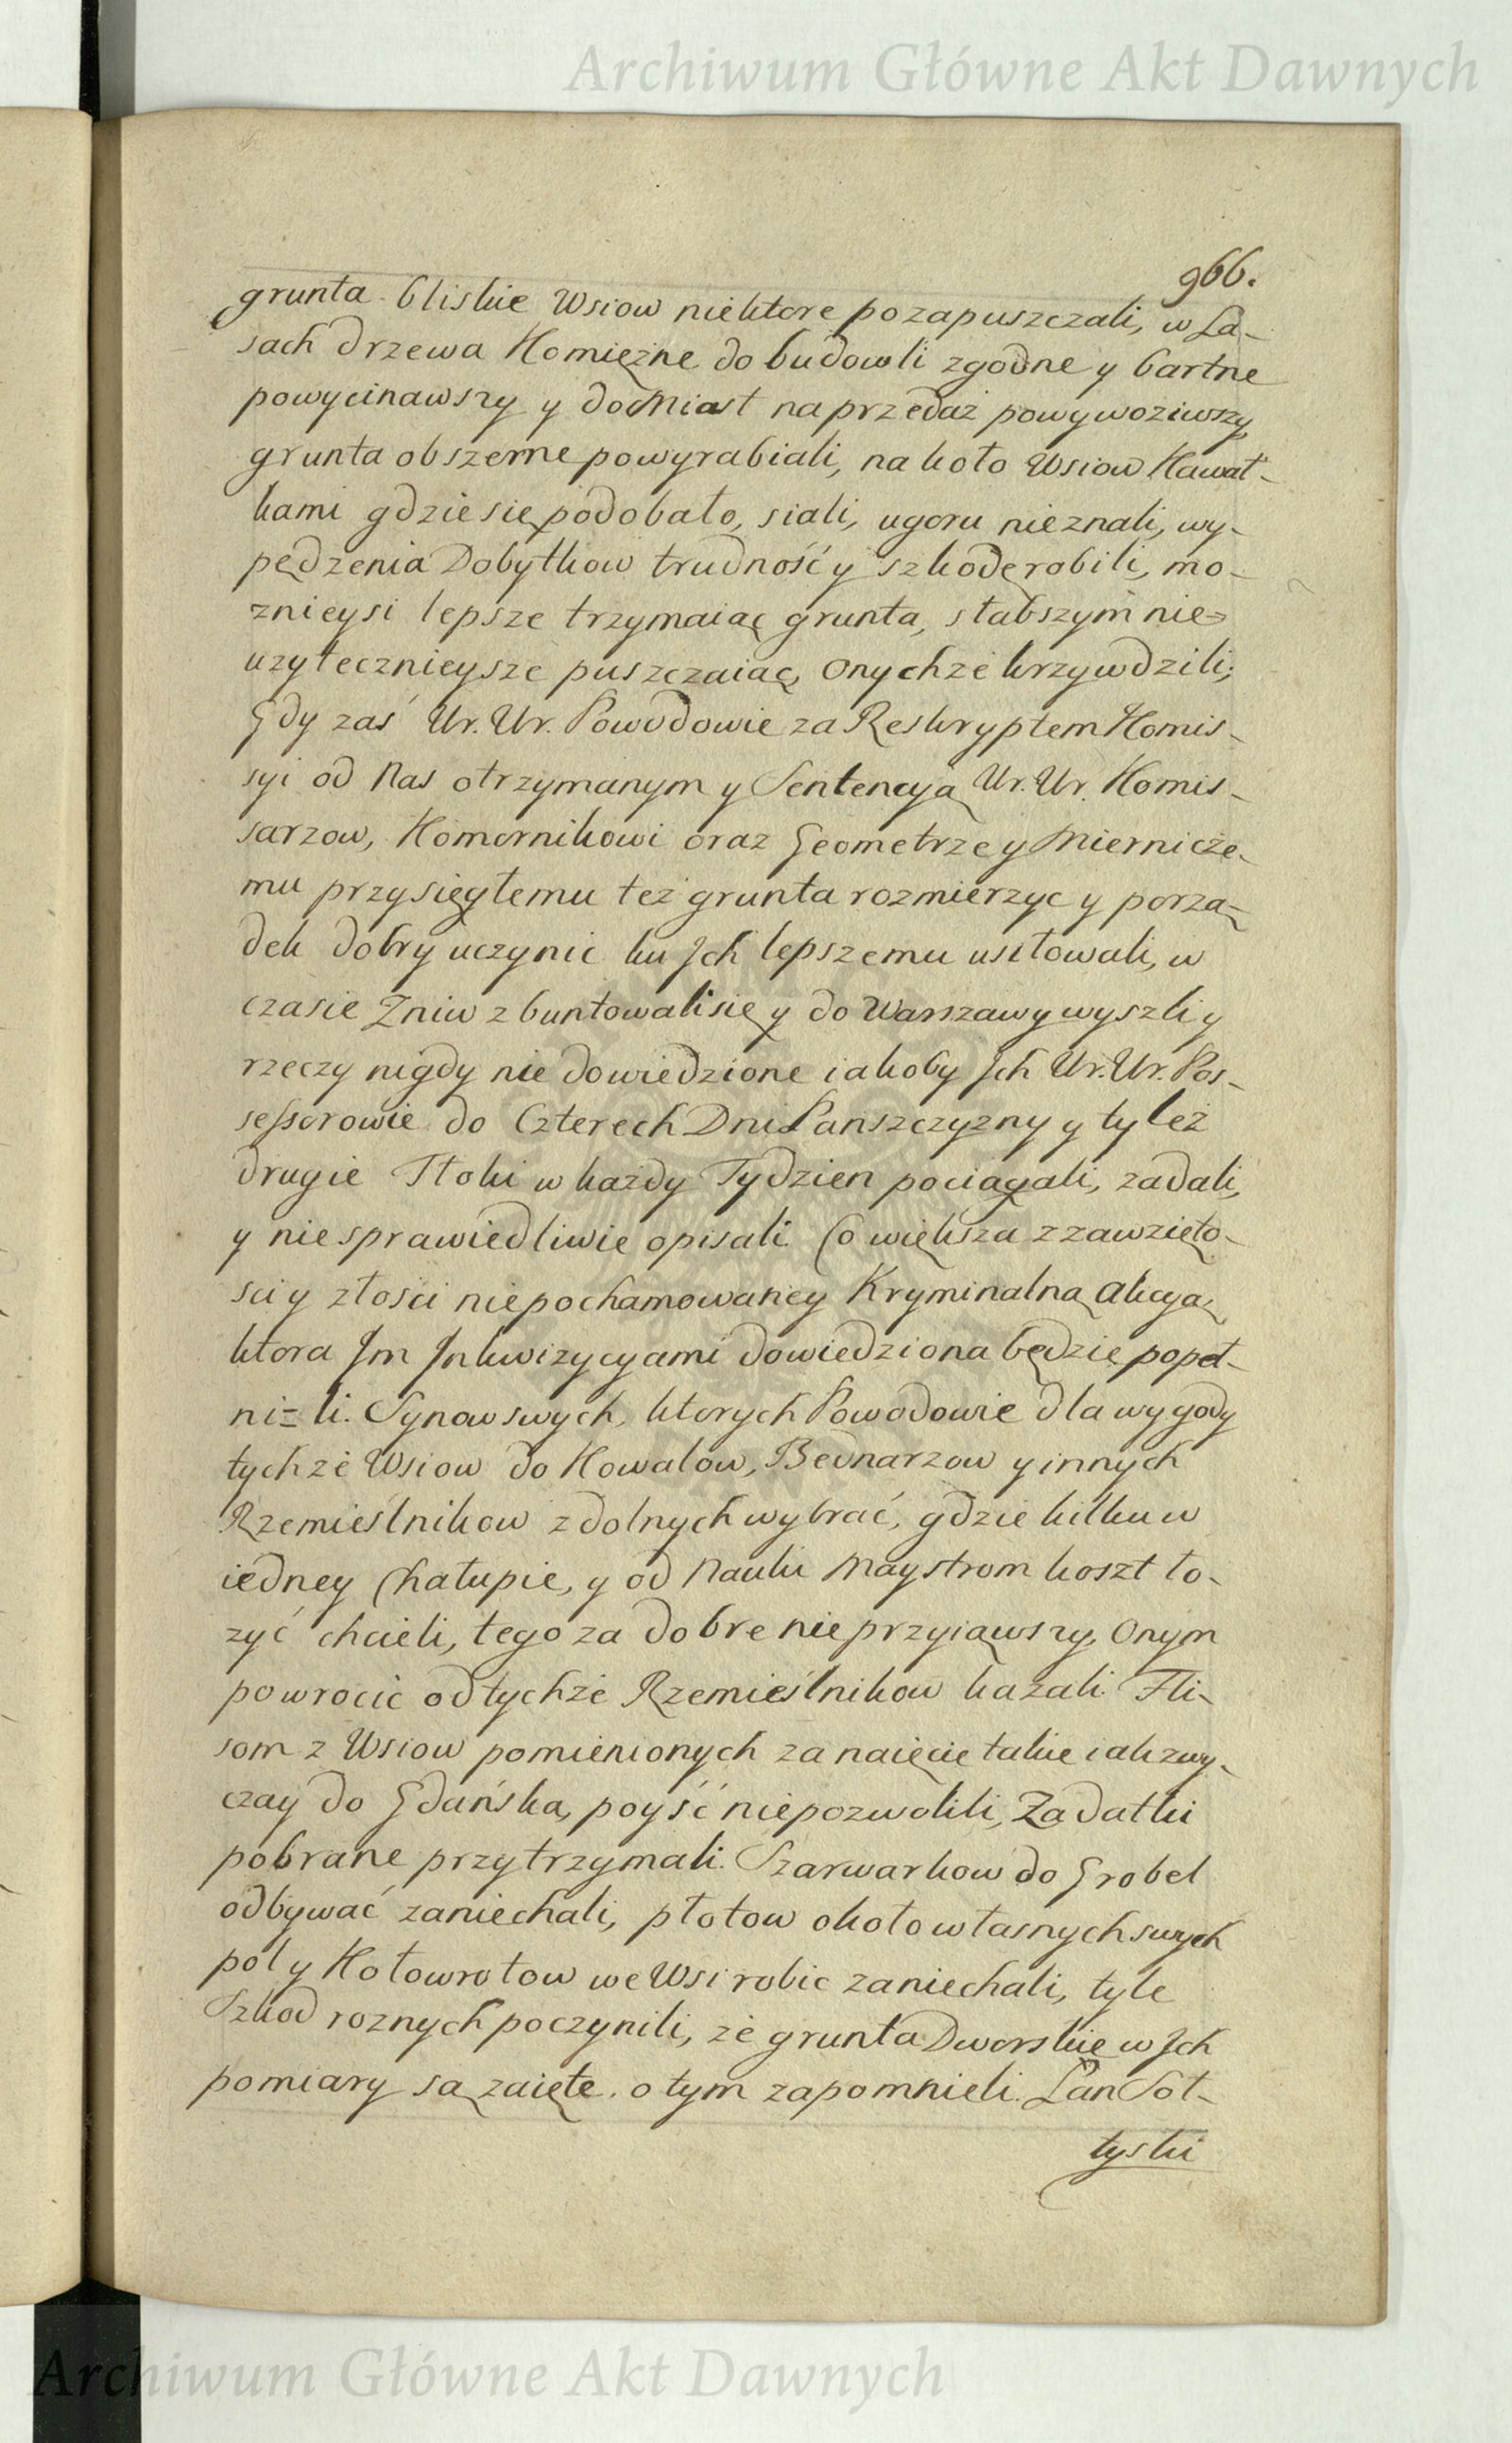 Archiwum Główne Akt Dawnych
966.
grunta bliskie Wsiow niektore pozapuszczali, w La-
sach drzewa Komięzne do budowli zgodne y bartne
powycinawszy y do Miast na przedaż powywoziwszy,
grunta obszerne powyrabiali, na koło Wsiow Kawał-
kami gdzie się podobało, siali, ugoru nieznali, wy-
pędzenia Dobytkow trudność y szkodę robili, mo-
znieysi lepsze trzymaiąc grunta, słabszym nie=
uzytecznieysze puszczaiąc, onychże krzywdzili;
Gdy zaś Ur. Ur. Powodowie za Reskryptem Komis-
syi od Nas otrzymanym y Sentencyą Ur. Ur. Komis-
sarzow, Komornikowi oraz Geometrze y Miernicze-
mu przysięgłemu też grunta rozmierzyc y porzą-
dek dobry uczynic ku Jch lepszemu usiłowali, w
czasie Żniw zbuntowali się y do Warszawy wyszli y
rzeczy nigdy nie dowiedzione iakoby Jch Ur. Ur. Pos-
sessorowie do Czterech Dni Panszczyzny y tyleż
drugie Tłoki w każdy Tydzien pociągali, zadali,
y niesprawiedliwie opisali. Co większa z zawzięto-
sci y złości niepochamowaney Kryminalną akcyą,
ktora Jm Jnkwizycyami dowiedziona będzie popeł-
ni=li. Synow swych, ktorych Powodowie dla wygody
tychże Wsiow do Kowalow, Bednarzow y innych
Rzemieślnikow zdolnych wybrać, gdzie kilku w
iedney Chałupie, y od Nauki Maystrom koszt ło-
zyć chcieli, tego za dobre nieprzyiąwszy, onym
powrocic od tychże Rzemieślnikow kazali. Fli-
som z Wsiow pomienionych za naięcie takie iak zwy-
czay do Gdańska, poyść niepozwolili, Zadatki
pobrane przytrzymali. Szarwarkow do Grobel
odbywać zaniechali, płotow około własnych swych
pol y Kołowrotow we Wsi robic zaniechali, tyle
Szkod roznych poczynili, że grunta Dworskie w Jch
pomiary są zaięte, o tym zapomnieli. Łan Soł-
tyski
Archiwum Główne Akt Dawnych